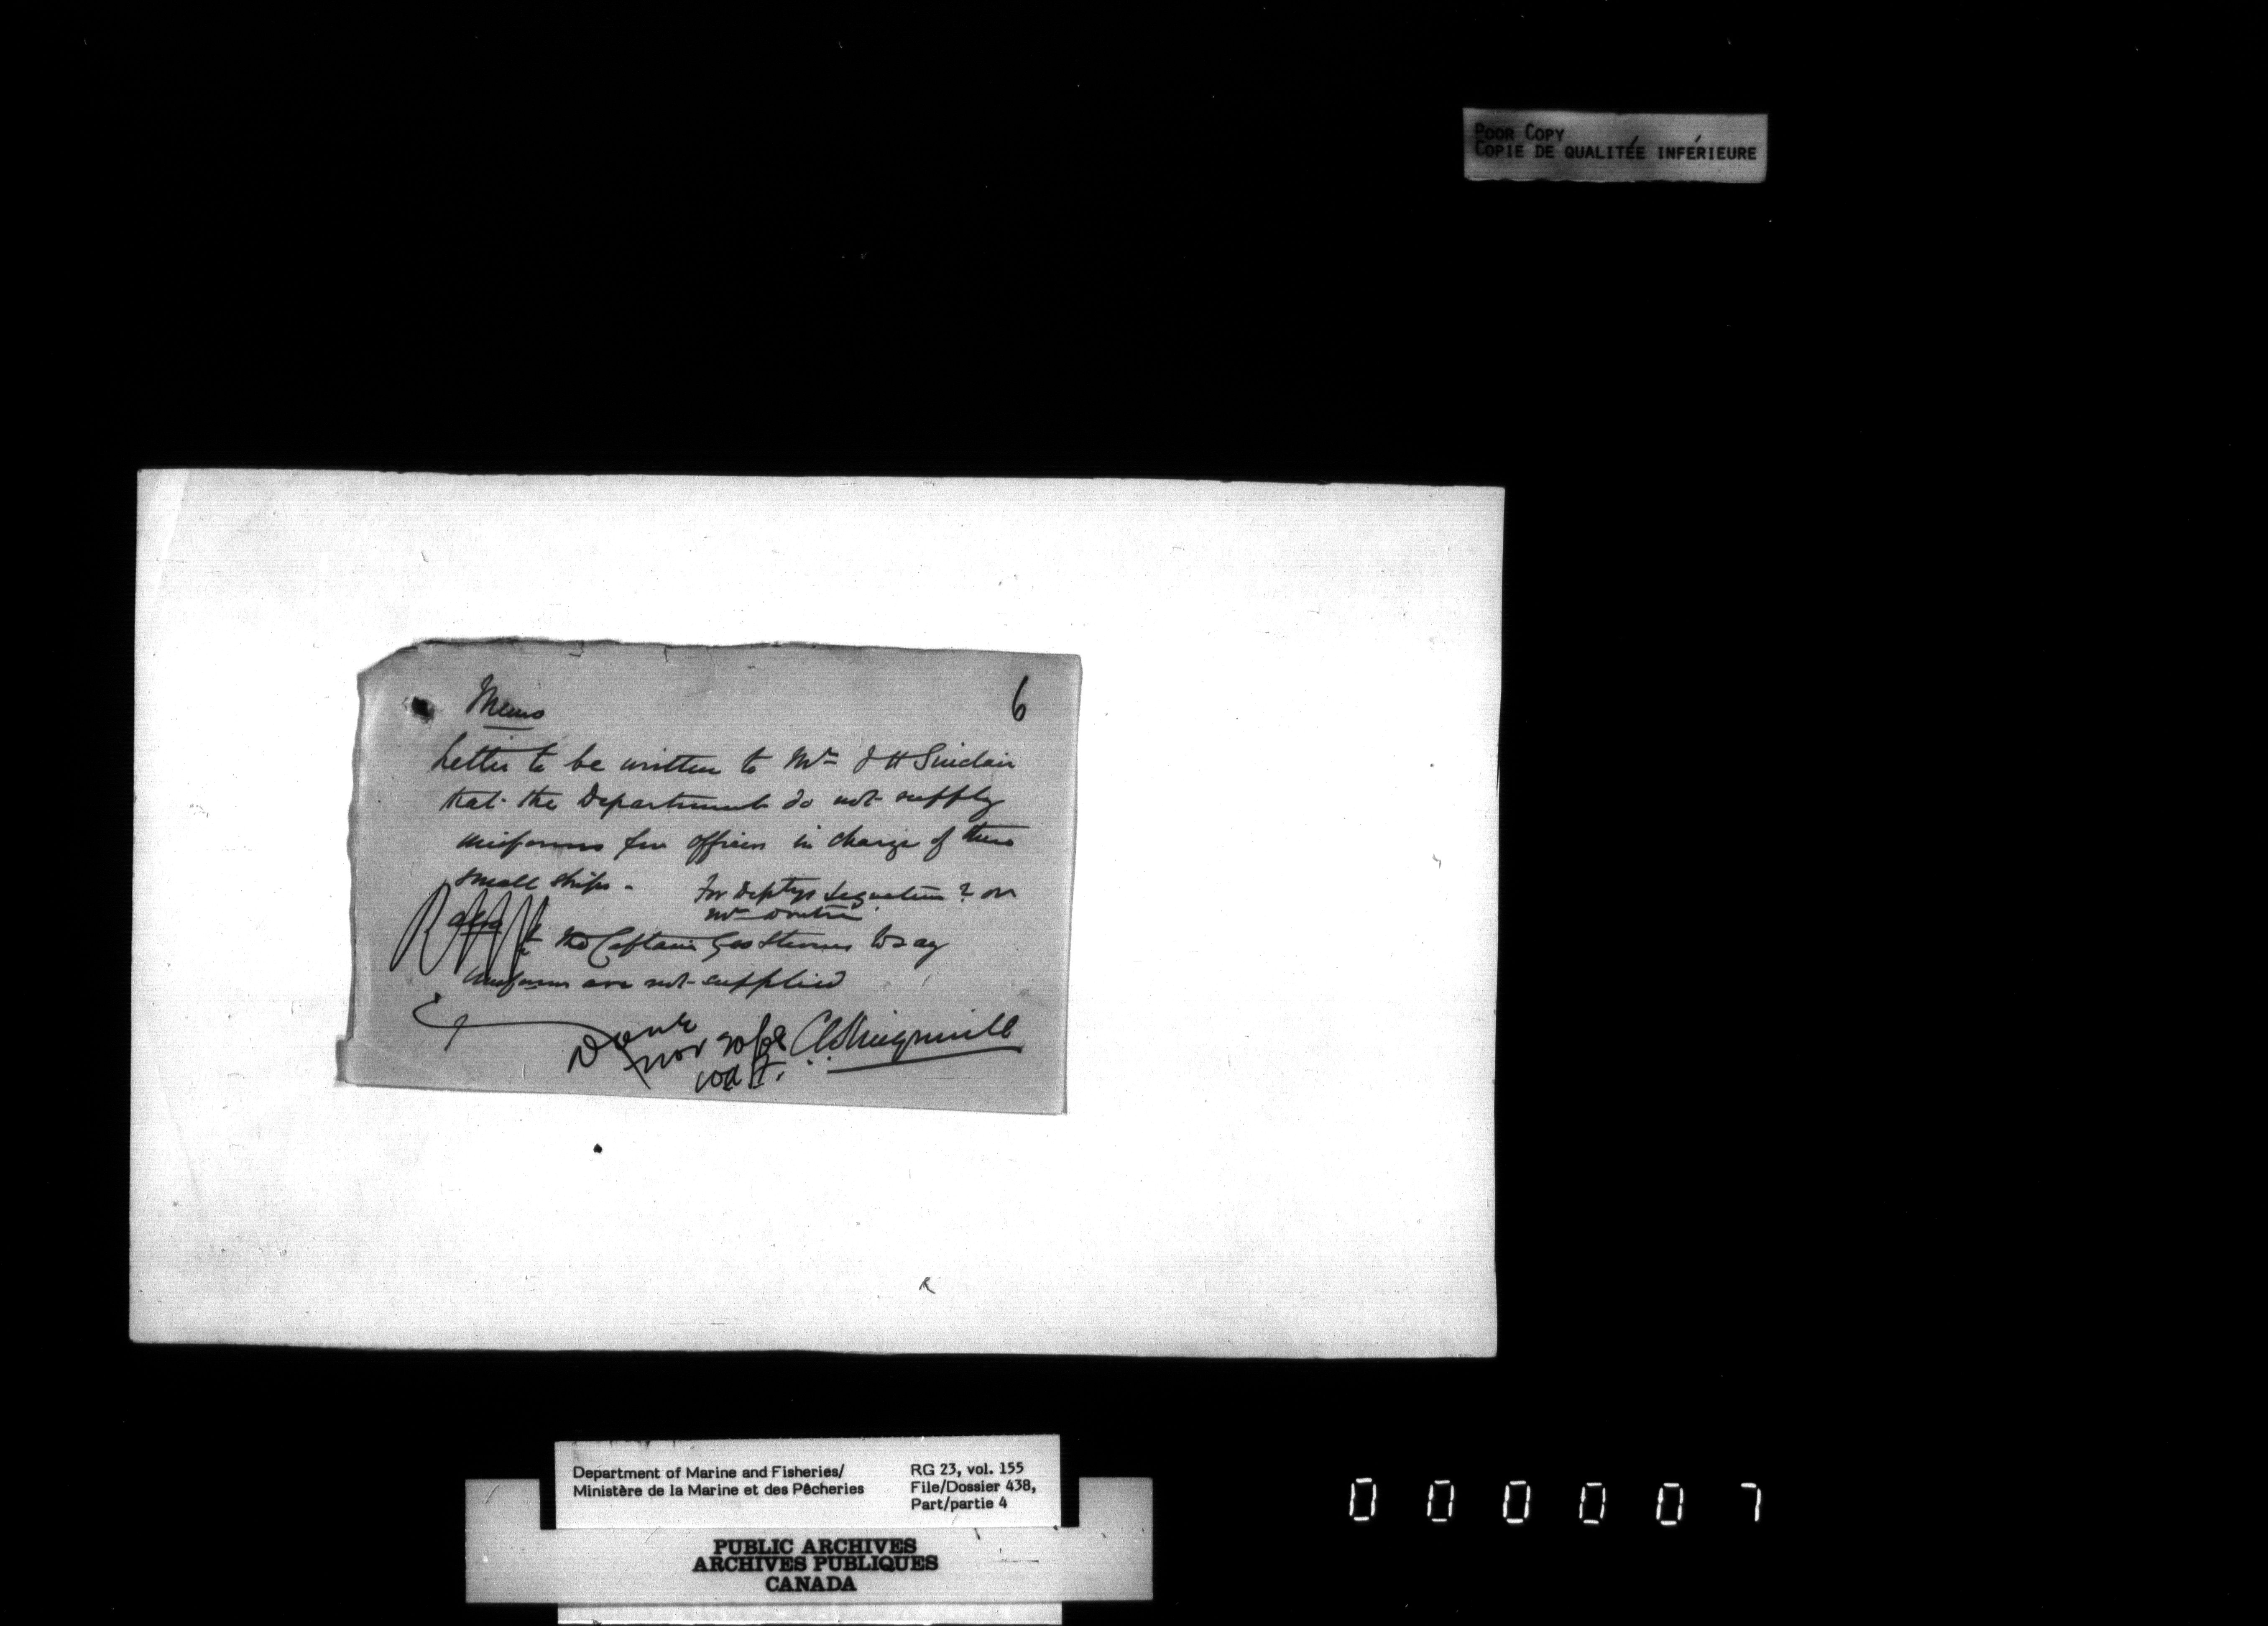 POOR COPY
COPIE DE QUALITÉE INFÉRIEURE
6
Memo
Letter to be written to Mr J H Sinclair
that the Department do not supply
uniforms for officers in charge of these
small ships.
For Deptys signature? or
Mr
also to the Captain Geo to say
uniforms are not supplied
Done
Nov 30/08
CEKingsmill
Department of Marine and Fisheries/
Ministère de la Marine et des Pêcheries
RG 23, vol. 155
File/Dossier 438,
Part/partie 4
PUBLIC ARCHIVES
ARCHIVES PUBLIQUES
CANADA
000007